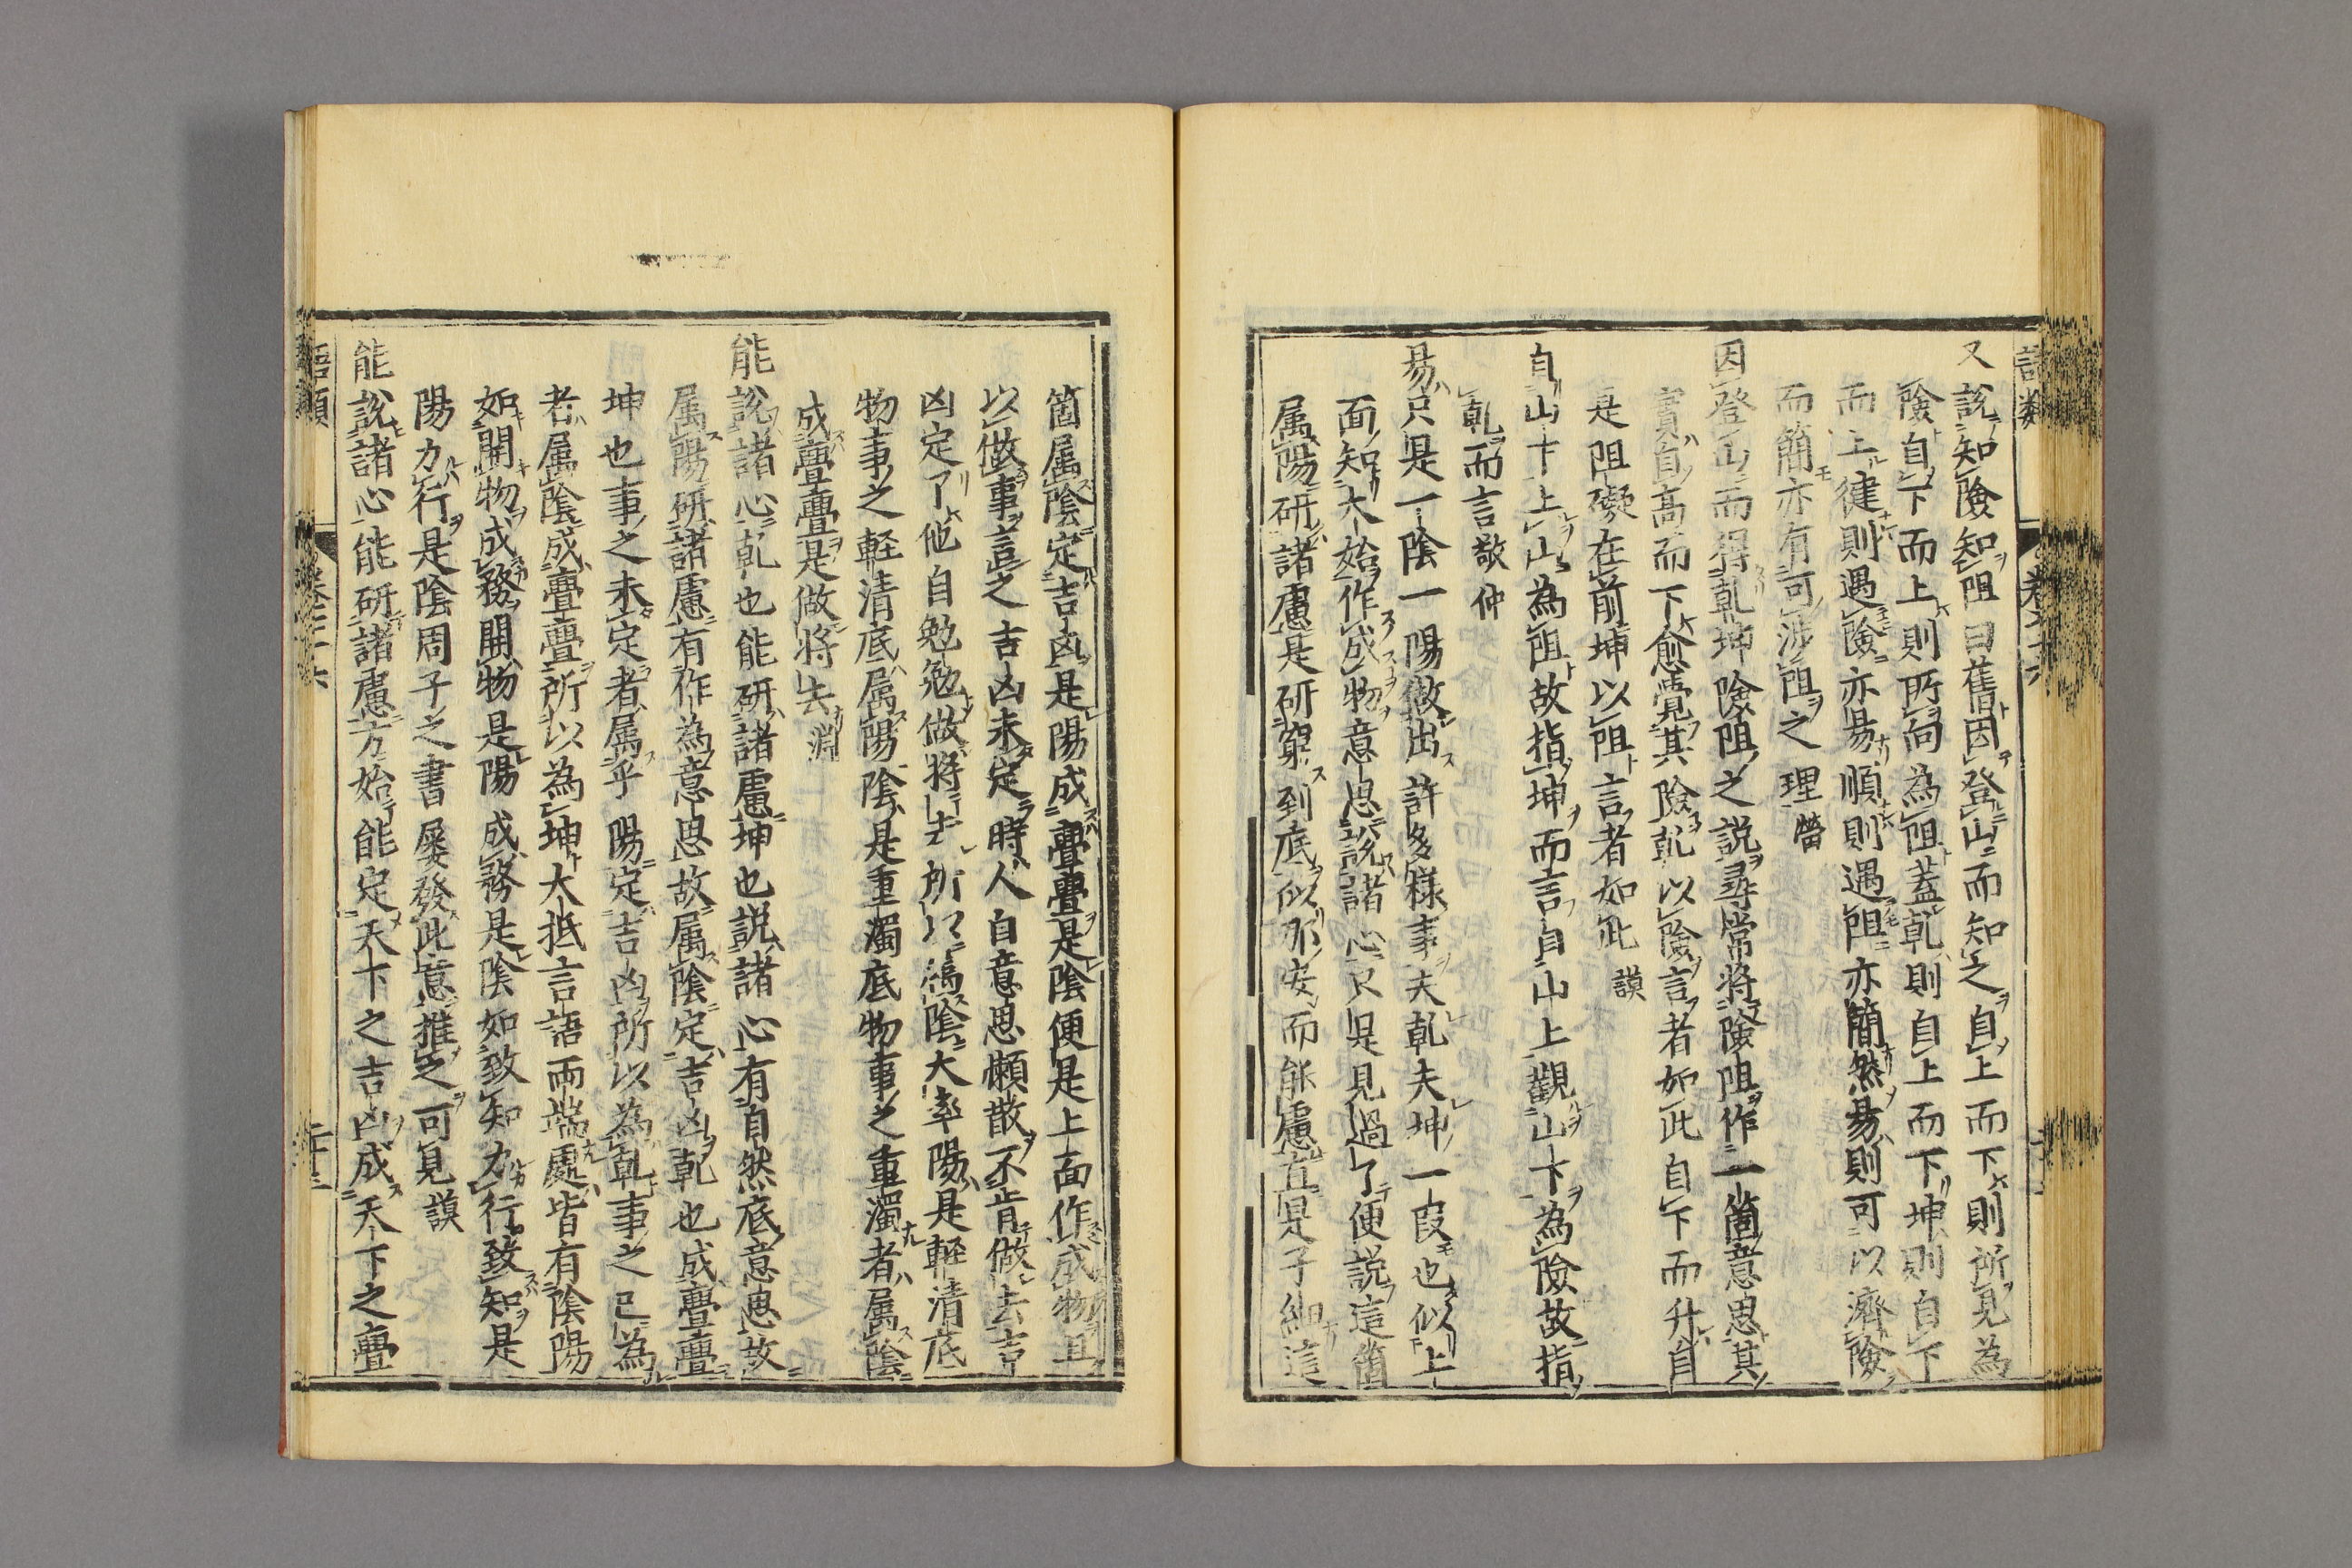 又說知險知阻曰舊因登山而知之自上而下則所見為
險自下而上則所向為阻蓋乾則自上而下坤則自下
而上健則遇險亦易順則遇阻亦簡然易則可以濟險
而簡亦有可涉阻之理㽦
因登山而得乾坤險阻之說尋常將險阻作一箇意思其
實自高而下愈覺其險乾以險言者如此自下而升自
是阻礙在前坤以阻言者如此謨
自山下上山為阻故指坤而言自山上觀山下為險故指
乾而言敬仲
易只是一陰一陽做出許多樣事夫乾夫坤一段也似上
面知大始作成物意思說諸心只是見過了便說這箇
属陽研諸慮是研窮到底似那安而能慮直是子細這
箇属陰定吉凶是陽成亹亹是陰便是上面作成物且
以做事言之吉凶未定時人自意思懶散不肯做去吉
凶定了他自勉勉做將去所以属陰大率陽是軽清底
物事之軽清底属陽陰是重濁底物事之重濁者属陰
成亹亹是做將去淵
能說諸心乾也能研諸慮坤也說諸心有自然底意思故
属陽研諸慮有作為意思故属陰定吉凶乾也成亹亹
坤也事之未定者属乎陽定吉凶所以為乾事之已為
者属陰成亹亹所以為坤大抵言語兩端處皆有陰陽
如開物成務開物是陽成務是陰如致知力行致知是
陽力行是陰周子之書屡發此意推之可見謨
能說諸心能研諸慮方始能定天下之吉凶成天下之亹